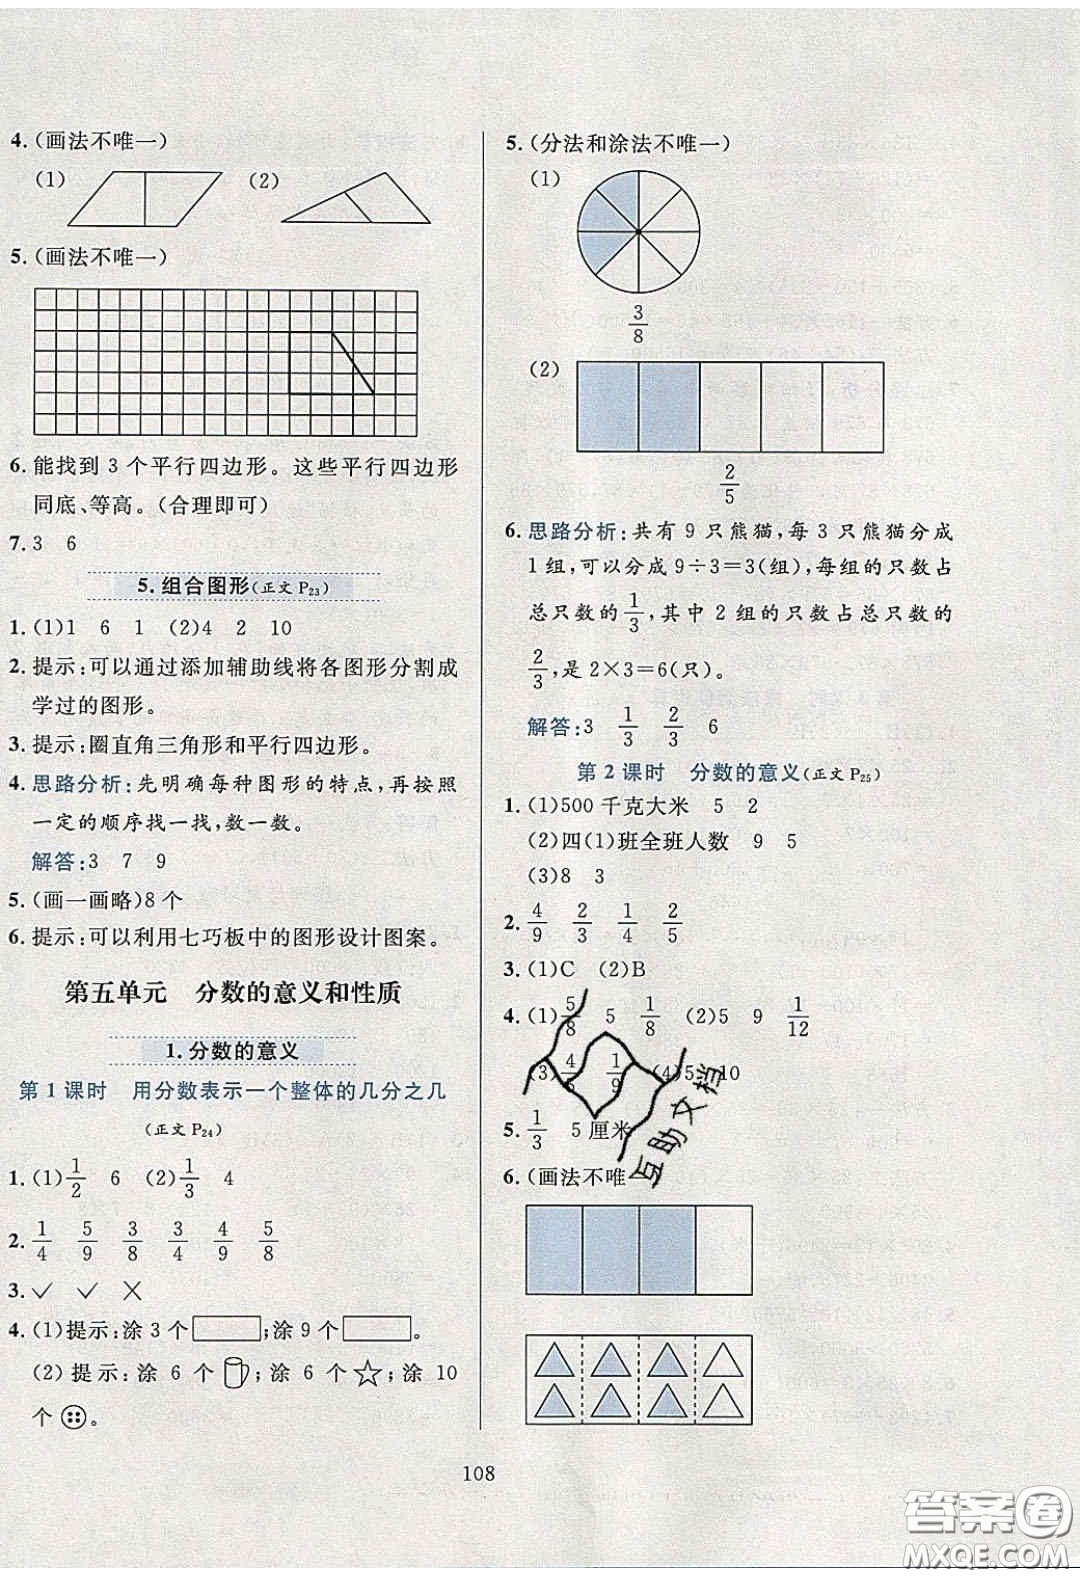 4.(画法不唯一)
(1) (2)
5.(画法不唯一)
6.能找到3个平行四边形。这些平行四边形
同底、等高。(合理即可)
7.3 6
5.组合图形(正文P23)
1.(1)1 6 1 (2)4 2 10
2.提示:可以通过添加辅助线将各图形分割成
学过的图形。
3.提示:圈直角三角形和平行四边形。
4.思路分析:先明确每种图形的特点,再按照
一定的顺序找一找,数一数。
解答:3 7 9
5.(画一画略)8个
6.提示:可以利用七巧板中的图形设计图案。
第五单元 分数的意义和性质
1.分数的意义
第1课时 用分数表示一个整体的几分之几
(正文P24)
1.(1)1/2 6 (2)1/3 4
2.1/4 5/9 3/8 3/4 4/9 5/8
3.✓ ✓ ✗
4.(1)提示:涂3个;涂9个。
(2)提示:涂6个;涂6个☆;涂10
个。
5.(分法和涂法不唯一)
(1)
3/8
(2)
2/5
6.思路分析:共有9只熊猫,每3只熊猫分成
1组,可以分成9÷3=3(组),每组的只数占
总只数的1/3,其中2组的只数占总只数的
2/3,是2×3=6(只)。
解答:3 1/3 2/3 6
第2课时 分数的意义(正文P25)
1.(1)500千克大米 5 2
(2)四(1)班全班人数 9 5
(3)8 3
2.4/9 2/3 1/4 2/5
3.(1)C (2)B
4.(1)5/8 5 1/8 (2)5 9 1/12
(3)4/5 1/9 (4)5 10
5.1/3 5厘米
6.(画法不唯一
互助文档
108
答案圈
MXQE.COM